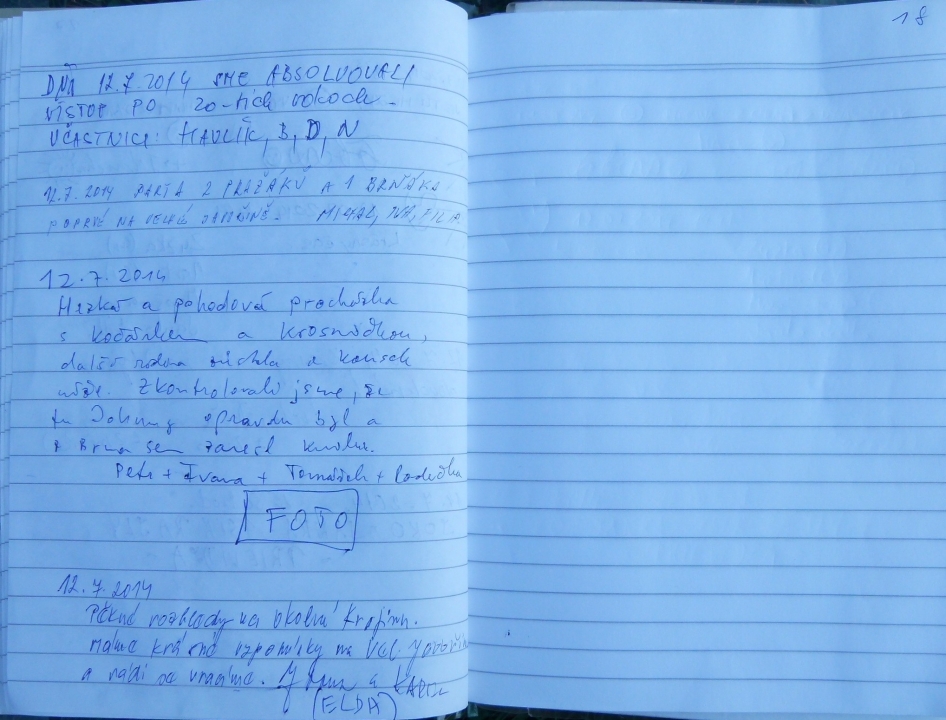 18
DŇA 12.7.2014 SME ABSOLVOVALI
VÍSTOP PO 20-tich rokoch.
UČASTNICI: HAVLÍK, B, D, N
12.7.2014 PARTA 2 PRAŽÁKŮ A 1 BRŇÁKA
POPRVÉ NA VELKÉ JAVOŘINĚ. MICHAL, IVA, FILIP
12.7.2014
Hezká a pohodová procházka
s kočárkem a krosničkou,
další rodina a kousek
níže. Zkontrolovali jsme, že
tu Johnny opravdu byl a
z Brna sem zanesl knihu.
Petr + Ivana + Tomášek +
FOTO
12.7.2014
Pěkné rozhledy na okolní krajinu.
Máme krásné vzpomínky na Vel. Javořinu
a rádi se vracíme. a KAREL
(ELDA)